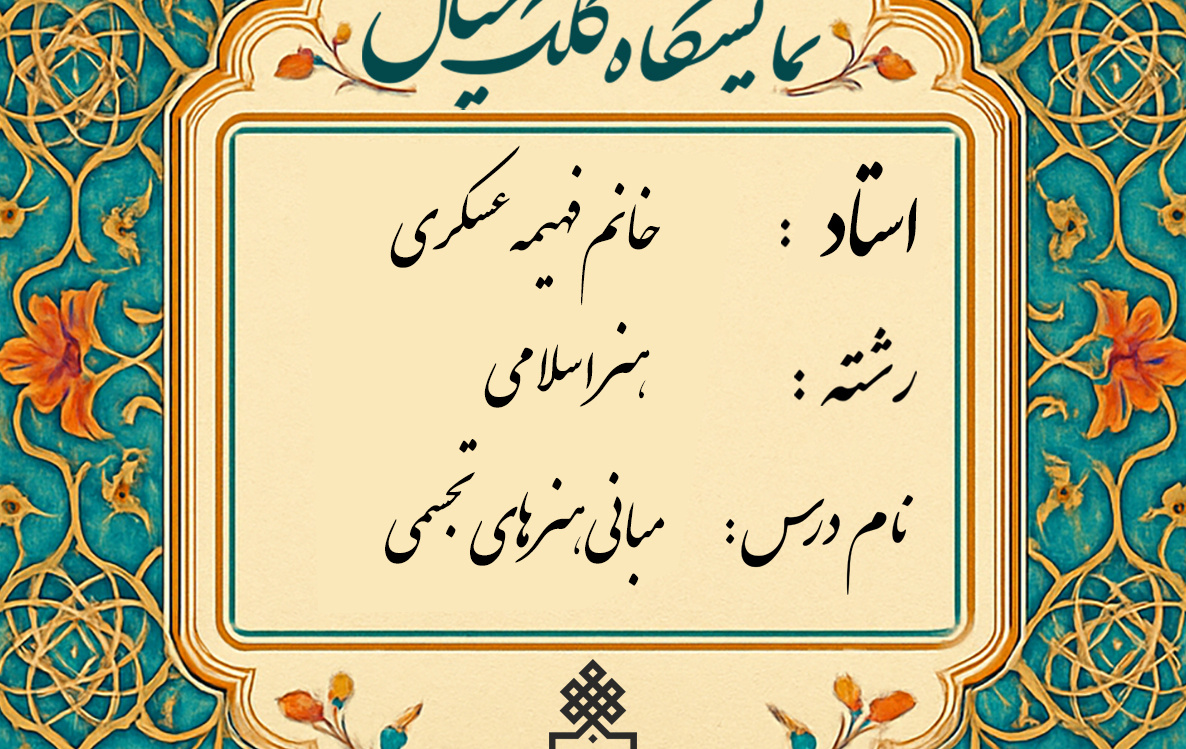 نمایشگاه کلک خیال
استاد : خانم فهیمه عسکری
رشته : هنر اسلامی
نام درس: مبانی هنرهای تجسمی